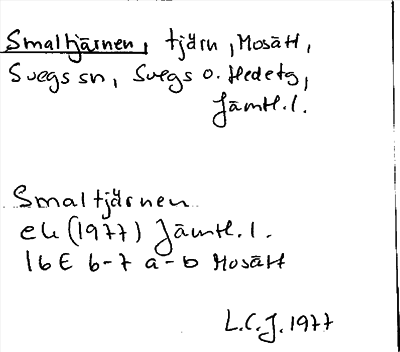 Smaltjärnen, tjärn, Mosätt,
Svegs sn, Svegs o. Hedetg,
Jämtl. l.
Smaltjärnen
ek (1977) Jämtl. l.
16E 6-7 a-b Mosätt
L.C.J. 1977